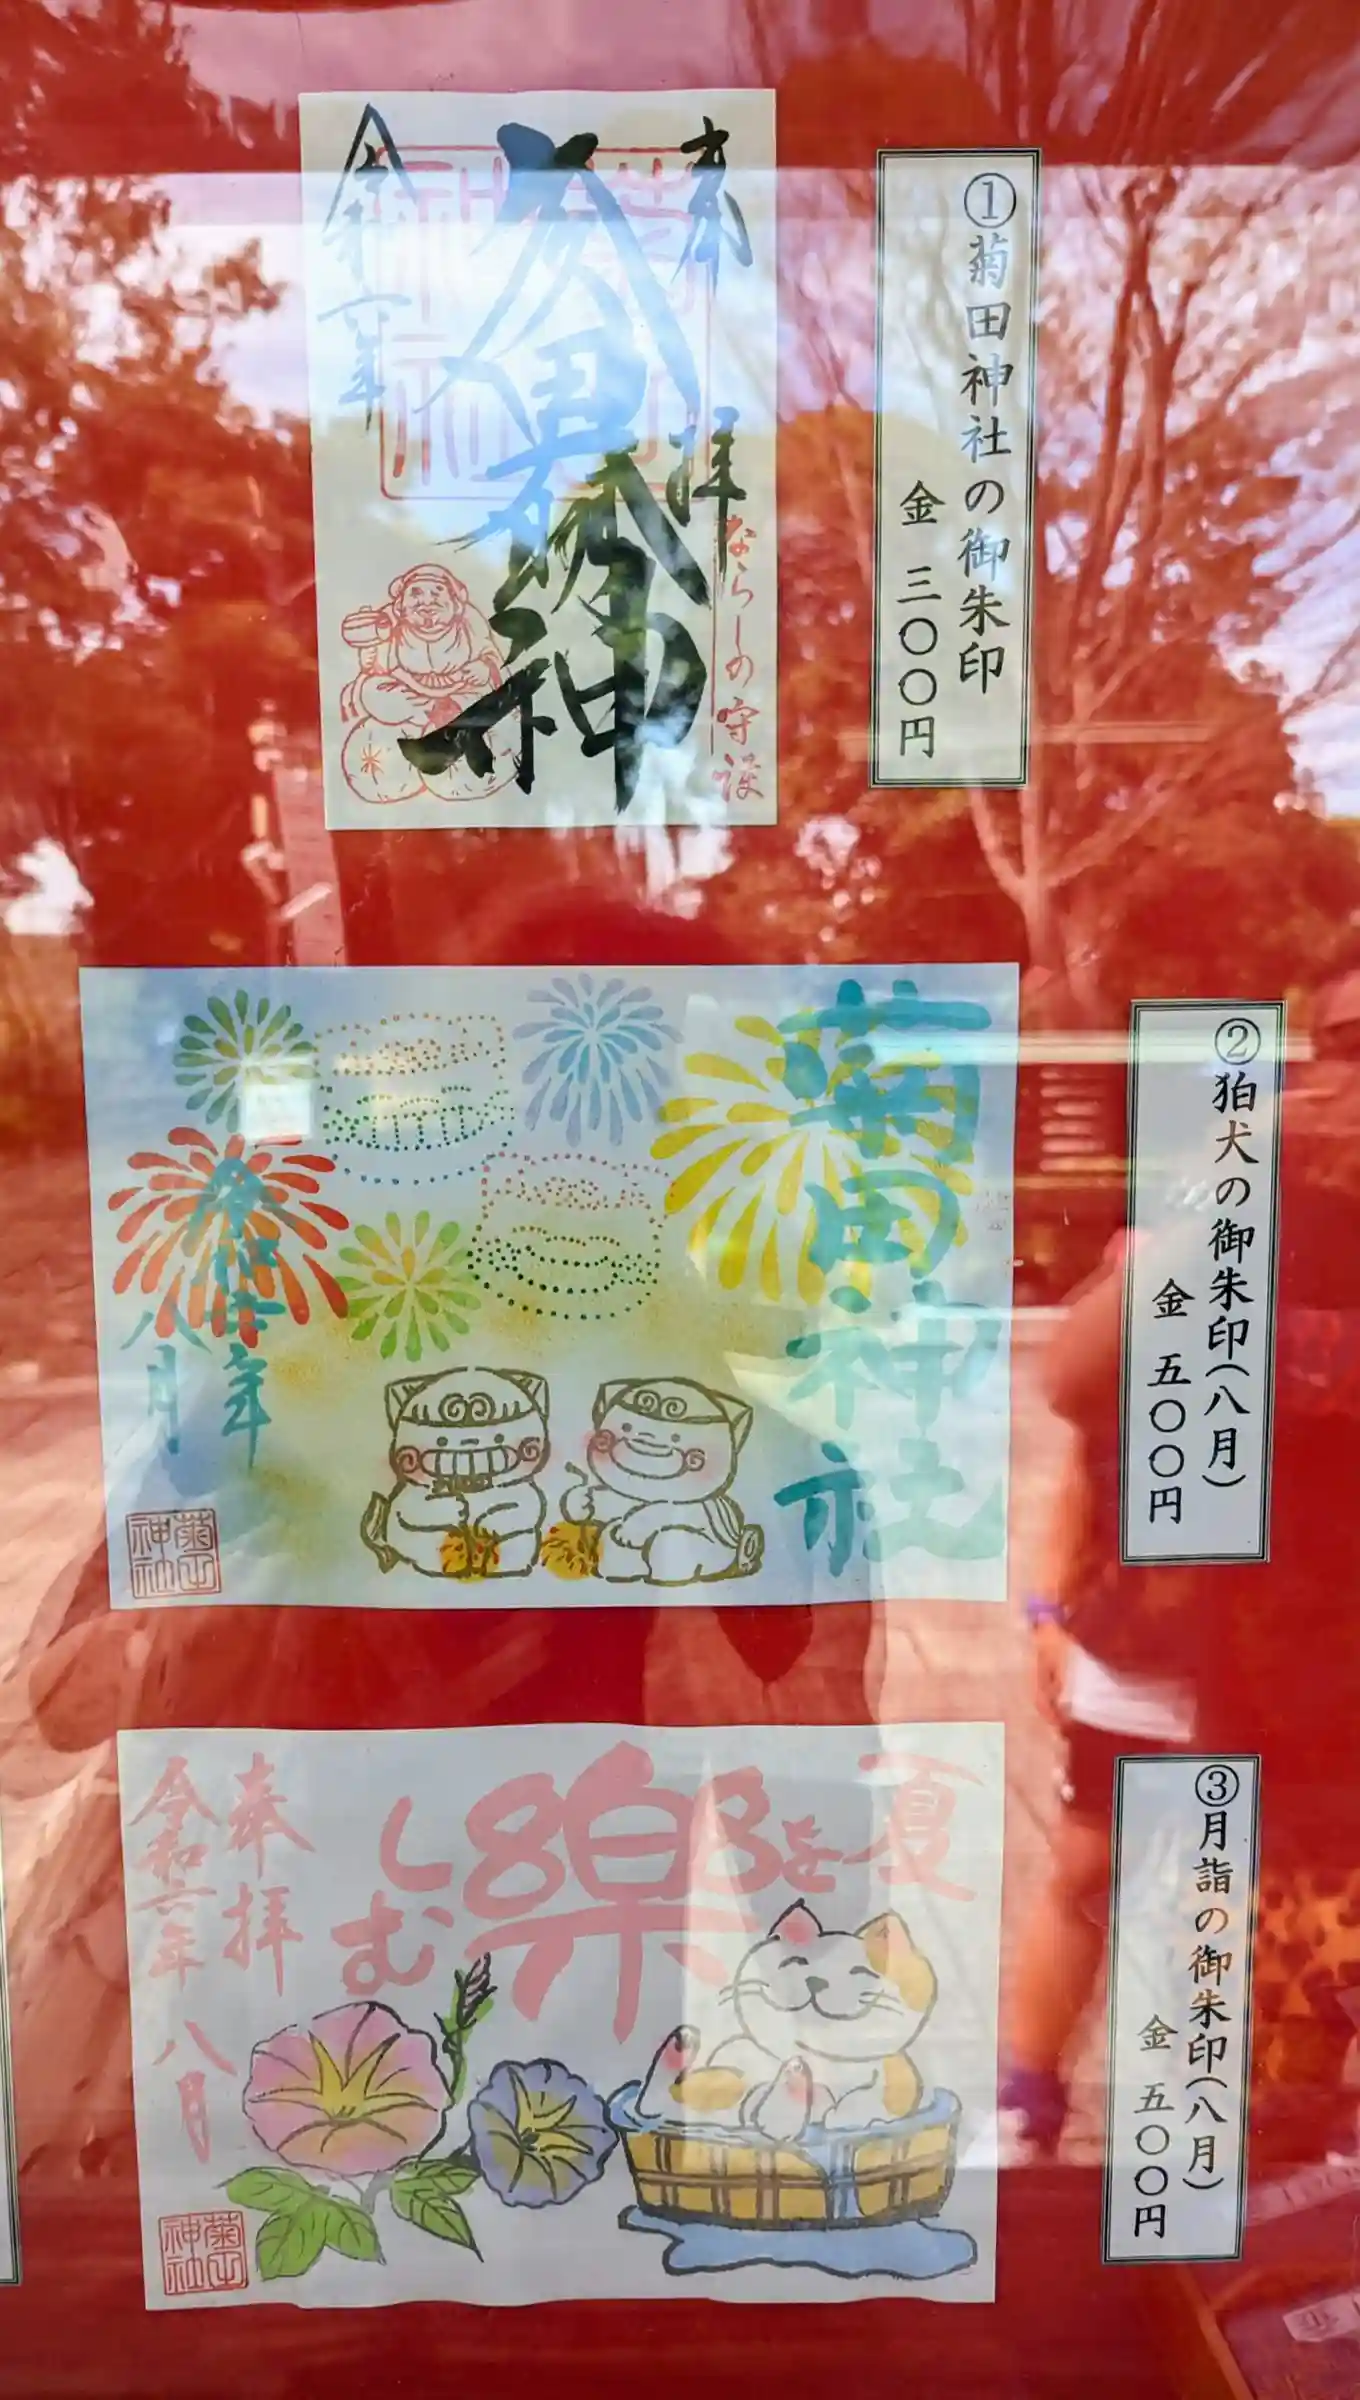 ①菊田神社の御朱印
金 三〇〇円
奉拝
ならしの守護
②狛犬の御朱印(八月)
金 五〇〇円
菊田神社
八月
菊田
神社
③月詣の御朱印(八月)
金 五〇〇円
夏
を
楽
し
む
奉拝
令和六年 八月
菊田
神社